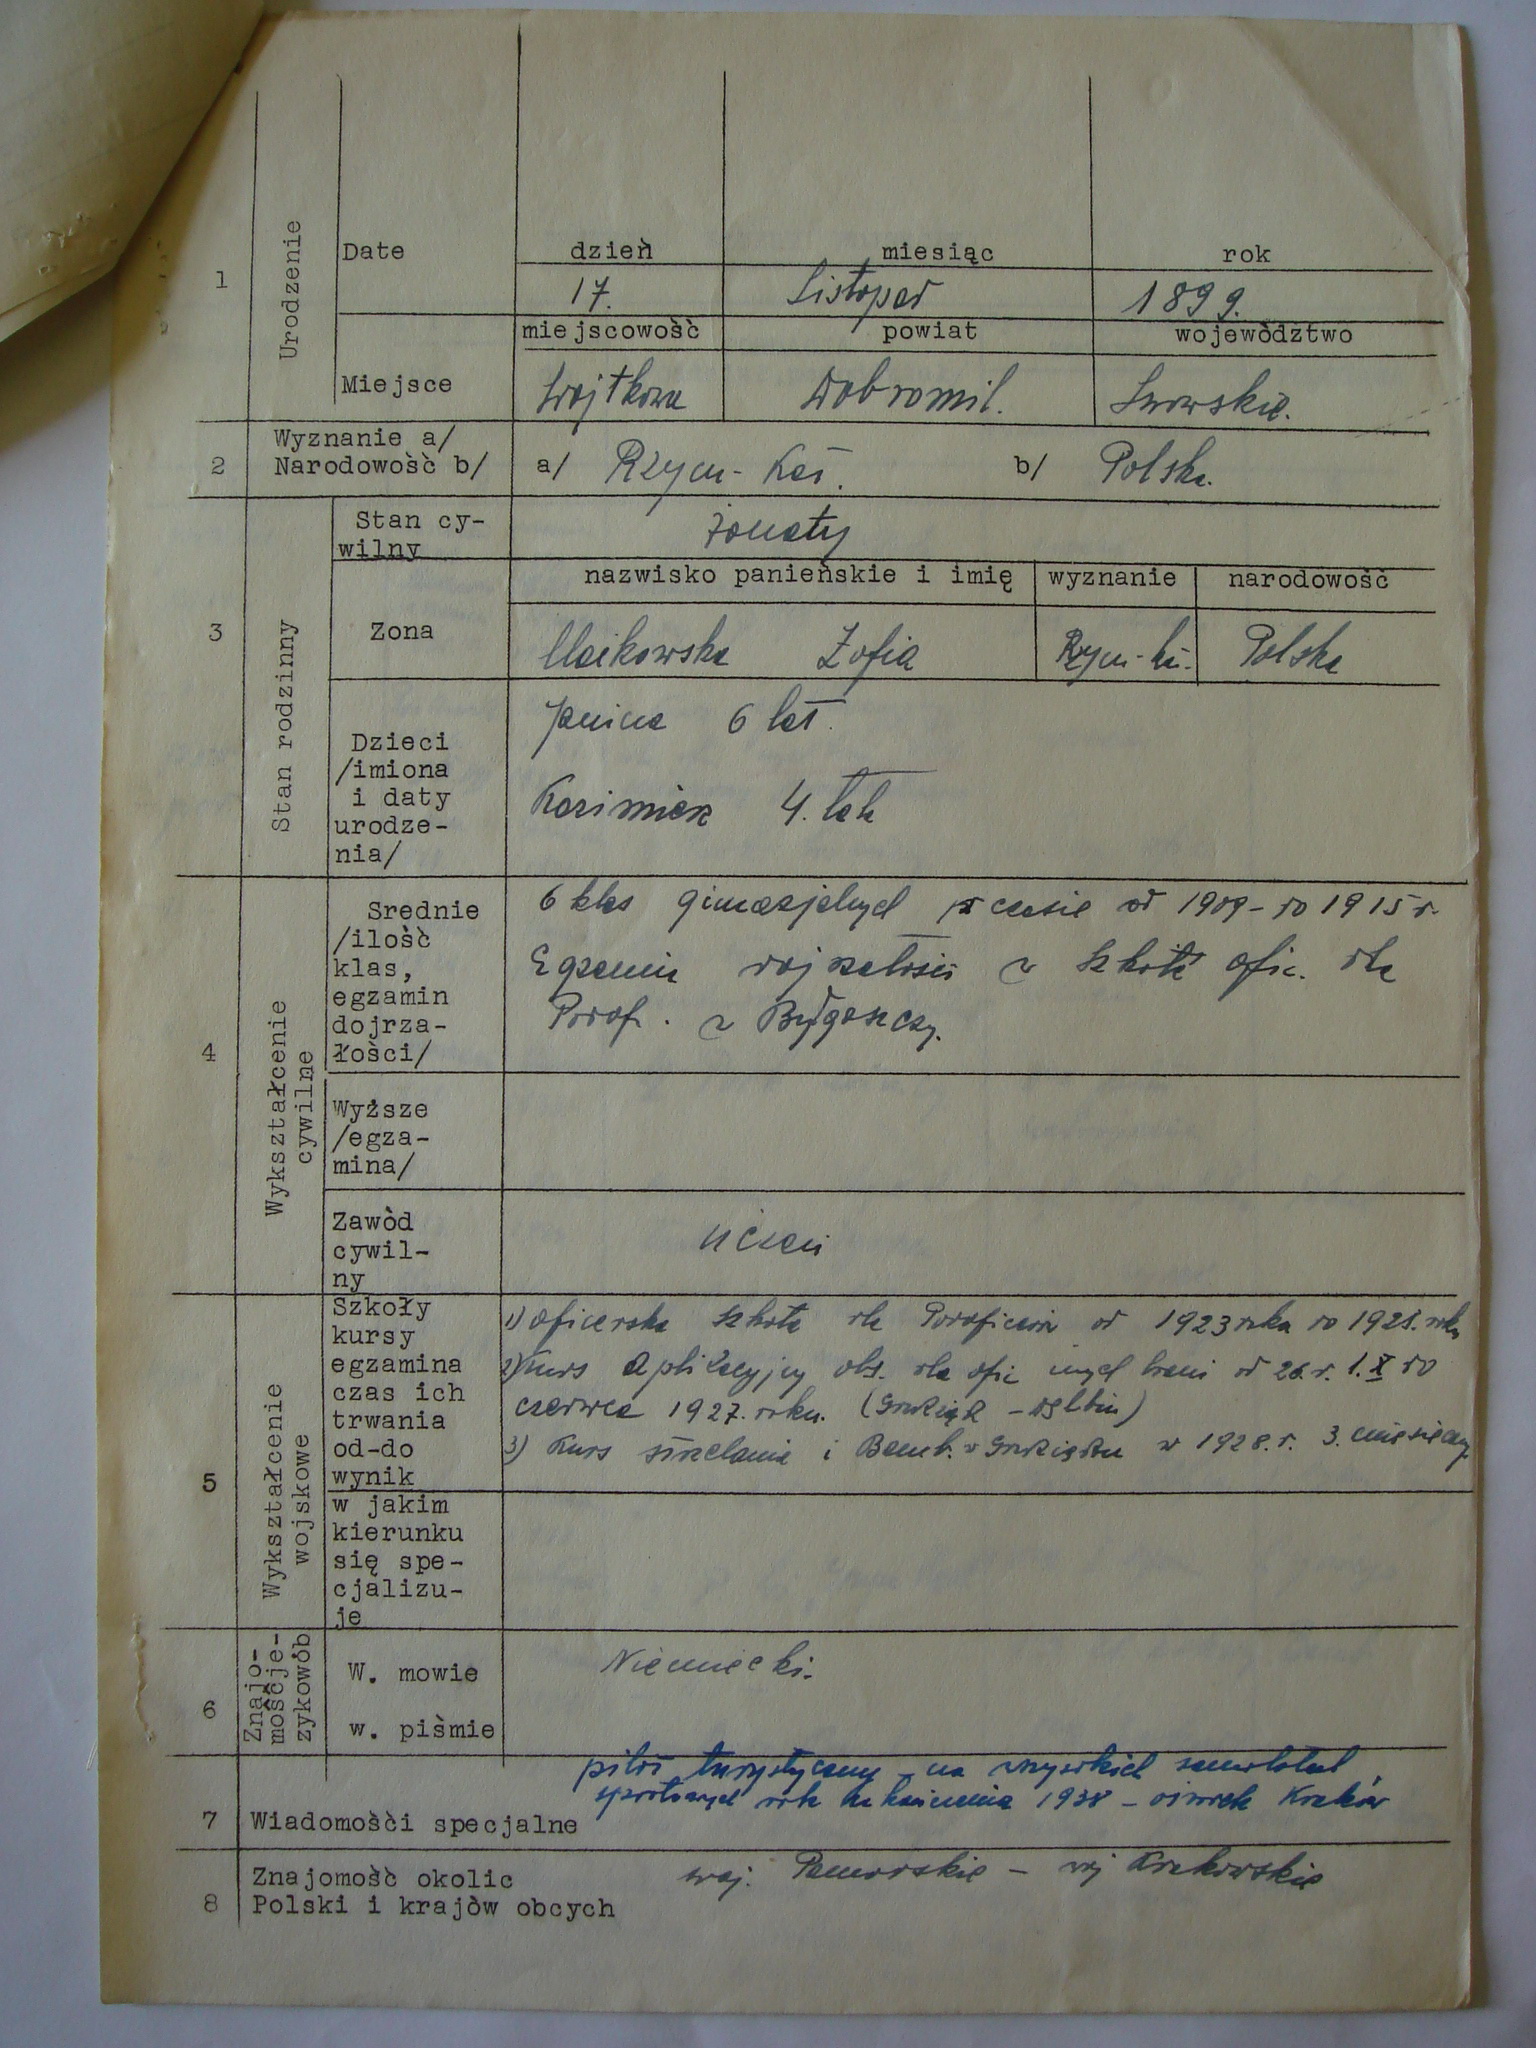 1 Urodzenie
Date dzień miesiąc rok
17. Listopad 1899.
miejscowość powiat województwo
Miejsce Wojtkowa Dobromil. Lwowskie.
2 Wyznanie a/
Narodowość b/ a/ Rzym-Kat. b/ Polska.
3 Stan rodzinny
Stan cy-
wilny żonaty
nazwisko panieńskie i imię wyznanie narodowość
Zona Maikowska Zofia Rzym-kat. Polska
Janina 6 lat.
Dzieci
/imiona
i daty
urodze-
nia/
Kazimierz 4. lata
4 Wykształcenie
cywilne
Srednie
/ilość
klas,
egzamin
dojrza-
łości/
6 klas gimnazjalnych w czasie od 1909 - do 1915 r.
Egzamin dojrzałości w szkole ofic. dla
Podof. w Bydgoszczy.
Wyższe
/egza-
mina/
Zawód
cywil-
ny
uczeń
5 Wykształcenie
wojskowe
Szkoły
kursy
egzamina
czas ich
trwania
od-do
wynik
1) Oficerska szkoła dla Podoficerów od 1923 roku do 1925. roku
2) Kurs aplikacyjny obs. dla ofic innych broni od 26.r. 1.X do
czerwca 1927. roku. (Grudziądz - Dęblin)
3) Kurs strzelania i Bomb. w Grudziądzu w 1928.r. 3. miesięczny
w jakim
kierunku
się spe-
cjalizu-
je
6 Znajo-
mośćje-
zykowób
W. mowie Niemiecki.
w. piśmie
pilot turystyczny na wszystkich samolotach
sportowych rok 1938 - Kraków
7 Wiadomości specjalne
8 Znajomość okolic
Polski i krajów obcych
woj. Pomorskie - woj Krakowskie